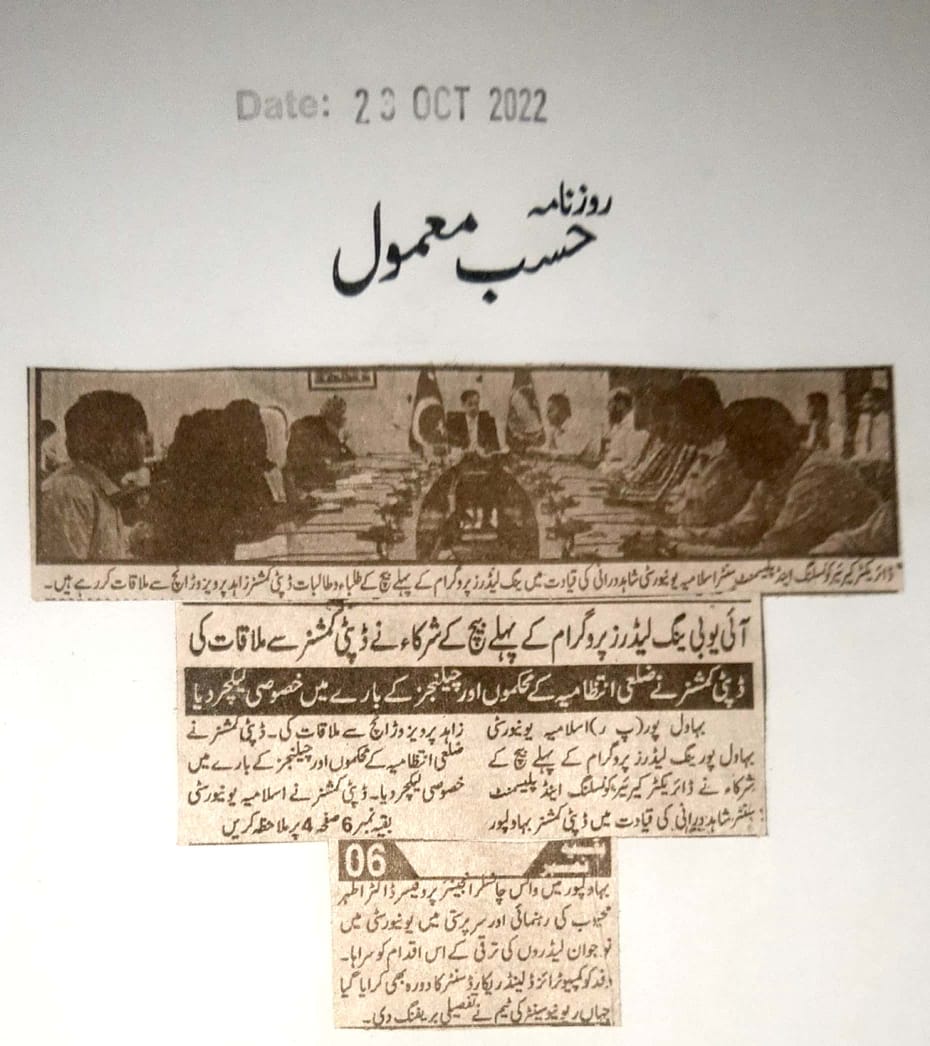 Date: 23 OCT 2022
روزنامہ
حسب معمول
ڈائریکٹر کیرئیر کونسلنگ اینڈ پلیسمنٹ سنٹر اسلامیہ یونیورسٹی شاہد درانی کی قیادت میں ینگ لیڈرز پروگرام کے پہلے بیچ کے طلباء و طالبات ڈپٹی کمشنر زاہد پرویز وڑائچ سے ملاقات کر رہے ہیں۔
آئی یو بی ینگ لیڈرز پروگرام کے پہلے بیچ کے شرکاء نے ڈپٹی کمشنر سے ملاقات کی
ڈپٹی کمشنر نے ضلعی انتظامیہ کے محکموں اور چیلنجز کے بارے میں خصوصی لیکچر دیا
بہاول پور (پ ر) اسلامیہ یونیورسٹی
بہاول پور ینگ لیڈرز پروگرام کے پہلے بیچ کے
شرکاء نے ڈائریکٹر کیرئیر کونسلنگ اینڈ پلیسمنٹ
سنٹر شاہد درانی کی قیادت میں ڈپٹی کمشنر بہاولپور
زاہد پرویز وڑائچ سے ملاقات کی۔ ڈپٹی کمشنر نے
ضلعی انتظامیہ کے محکموں اور چیلنجز کے بارے میں
خصوصی لیکچر دیا۔ ڈپٹی کمشنر نے اسلامیہ یونیورسٹی
بقیہ نمبر 6 صفحہ 4 پر ملاحظہ کریں
بقیہ نمبر 06
بہاولپور میں وائس چانسلر انجینئر پروفیسر ڈاکٹر اطہر
محبوب کی رہنمائی اور سرپرستی میں یونیورسٹی میں
نوجوان لیڈروں کی ترقی کے اس اقدام کو سراہا۔
وفد کو کمپیوٹرائزڈ لینڈ ریکارڈ سنٹر کا دورہ بھی کرایا گیا
جہاں ریونیو سینٹر کی ٹیم نے تفصیلی بریفنگ دی۔